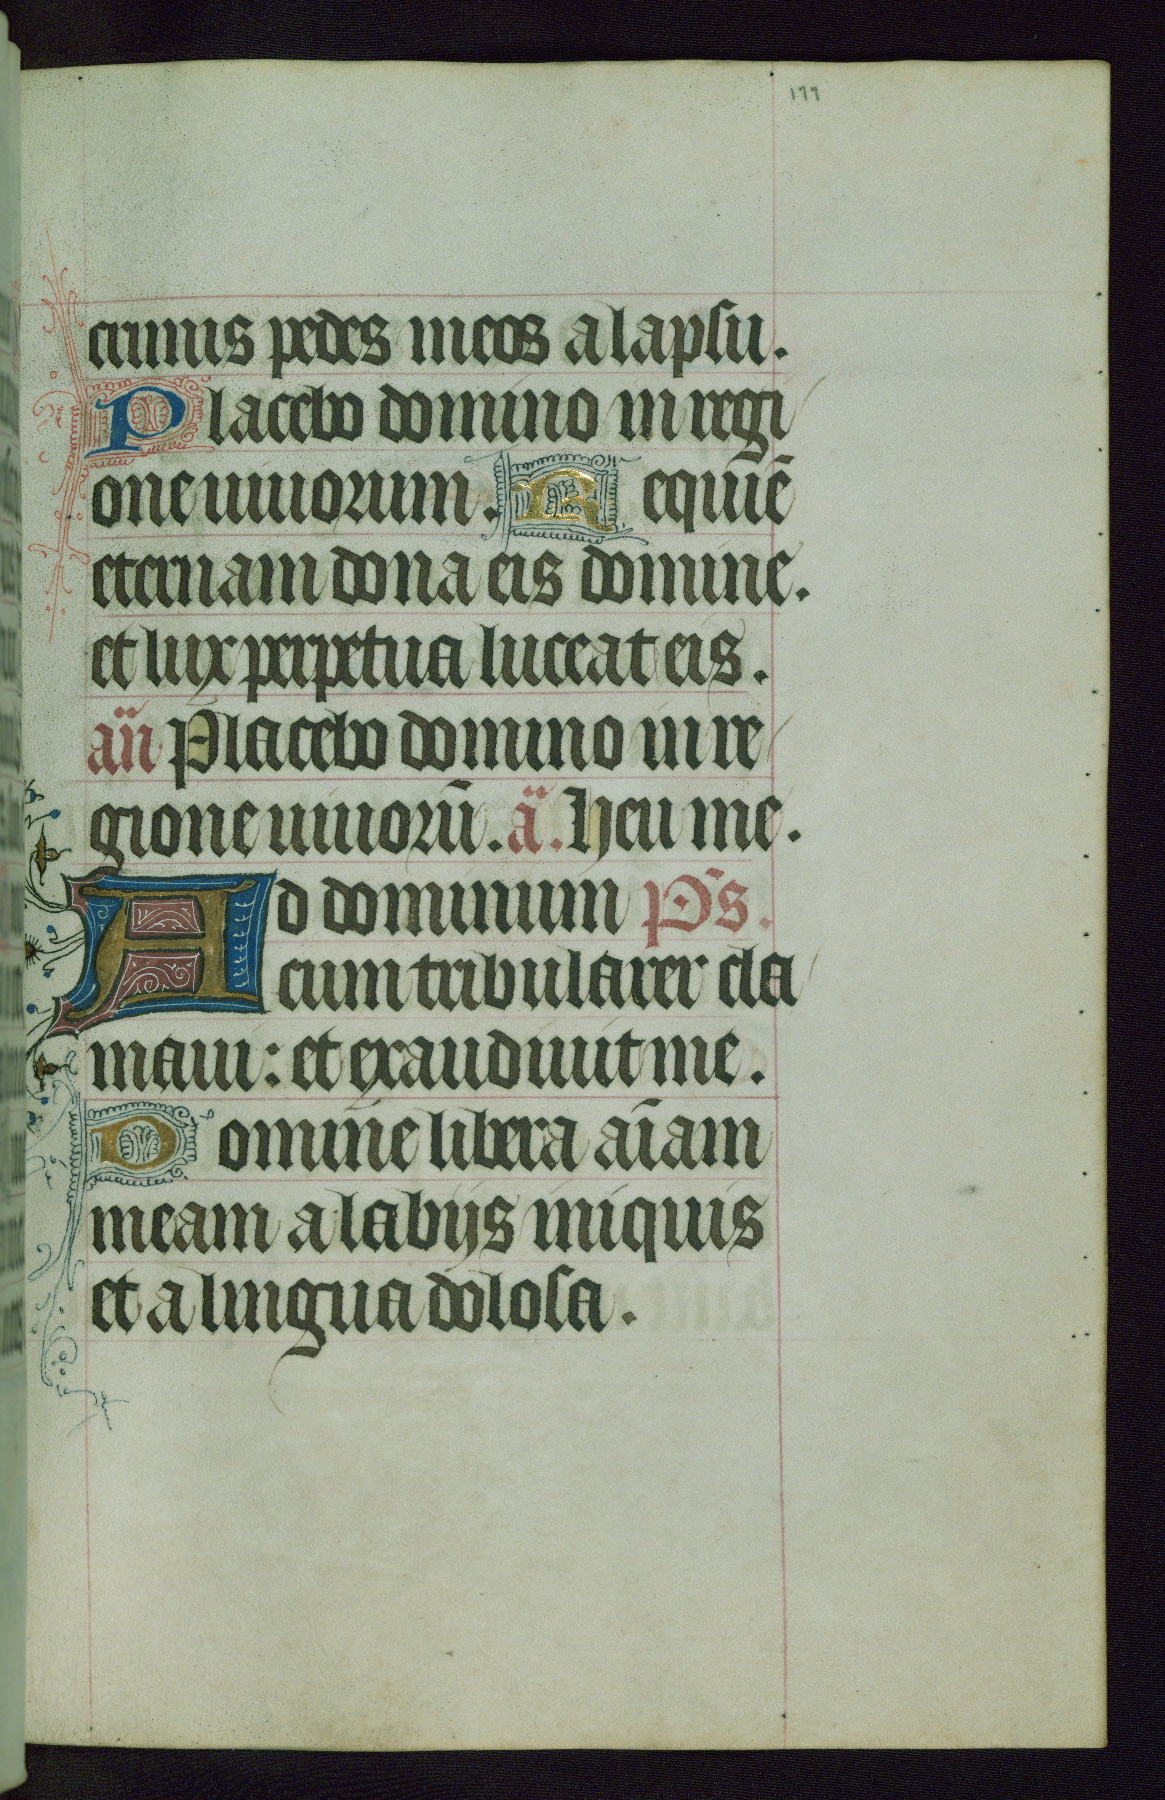 177
crimis pedes meos a lapsu.
Placebo domino in regi
one uiuorum. Requiē
eternam dona eis domine.
et lux perpetua luceat eis.
añ Placebo domino in re
gione uiuorū. a̅. Heu me.
Ad dominum p̄s.
cum tribularer cla
maui: et exaudiuit me.
Domine libera aīam
meam a labijs iniquis
et a lingua dolosa.